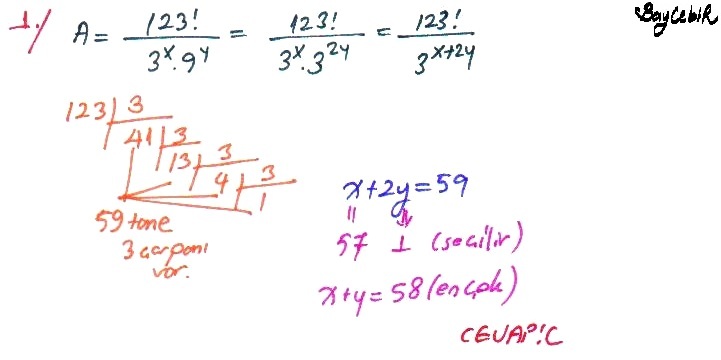 BayCebiR
1-) A = 123! / 3^x . 9^y = 123! / 3^x . 3^2y = 123! / 3^x+2y
123 | 3
41 | 3
13 | 3
4 | 3
1
59 tane
3 çarpanı
var.
x+2y=59
57 1 (seçilir)
x+y=58 (en çok)
CEVAP: C